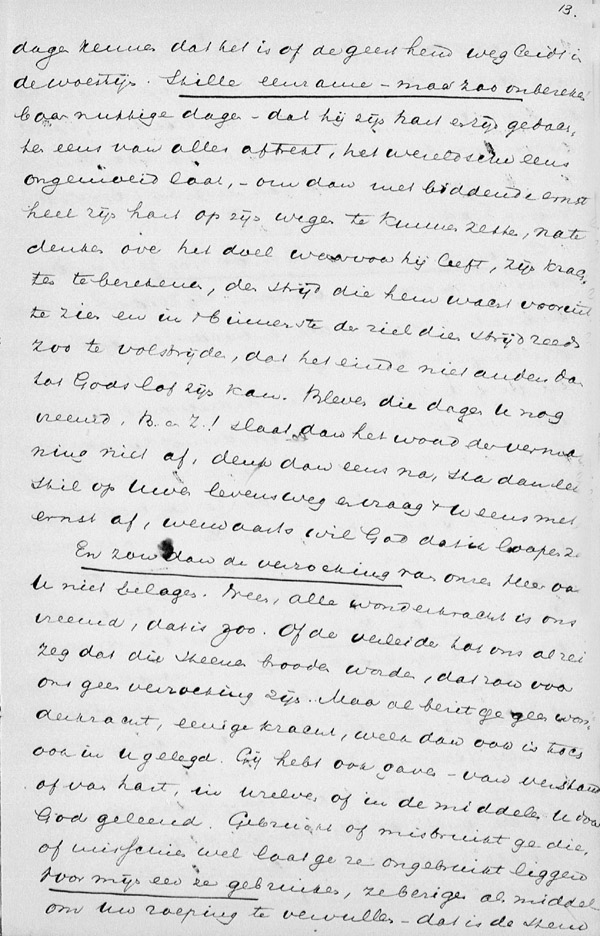 13.
dagen kennen dat het is of de geest hem weg leidt in
de woestijn. Stille eenzame – maar zoo onbereken
baar nuttige dagen – dat hij zijn hart en zijn gedach
ten eens van alles aftrekt, het wereldsche eens
ongemoeid laat, – om dan met biddende ernst
heel zijn hart op zijn wegen te kunnen zetten, na te
denken over het doel waarvoor hij leeft, zijn krach
ten te berekenen, den strijd die hem wacht vooruit
te zien en in 't binnenste der ziel dien strijd reeds
zoo te volstrijden, dat het einde niet anders dan
tot Gods lof zijn kan. Bleven die dagen U nog
vreemd, B. en Z.! slaat dan het woord der verma
ning niet af, denk dan eens na, sta dan een
stil op Uwen levensweg en vraagt U eens met
ernst af, werwaarts wil God dat ik loopen z
En zou dan de verzoeking van onzen Heer va
U niet belagen. Neen, alle wonderkracht is ons
vreemd, dat is zoo. Of de verleider tot ons al rei
zeg dat die steenen brooden worden, dat zou voor
ons geen verzoeking zijn. Maar al bezit ge geen won
derkracht, eenige kracht, welk dan ook is toch
ook in U gelegd. Gij hebt ook gaven – van verstand
of van hart, in U zelven of in de middelen U door
God geleend. Gebruikt of misbruikt ge die,
of misschien wel laat ge ze ongebruikt liggen
Voor mijn eer ze gebruiken, ze bezigen als middel
om Uw roeping te vervullen – dat is de stem